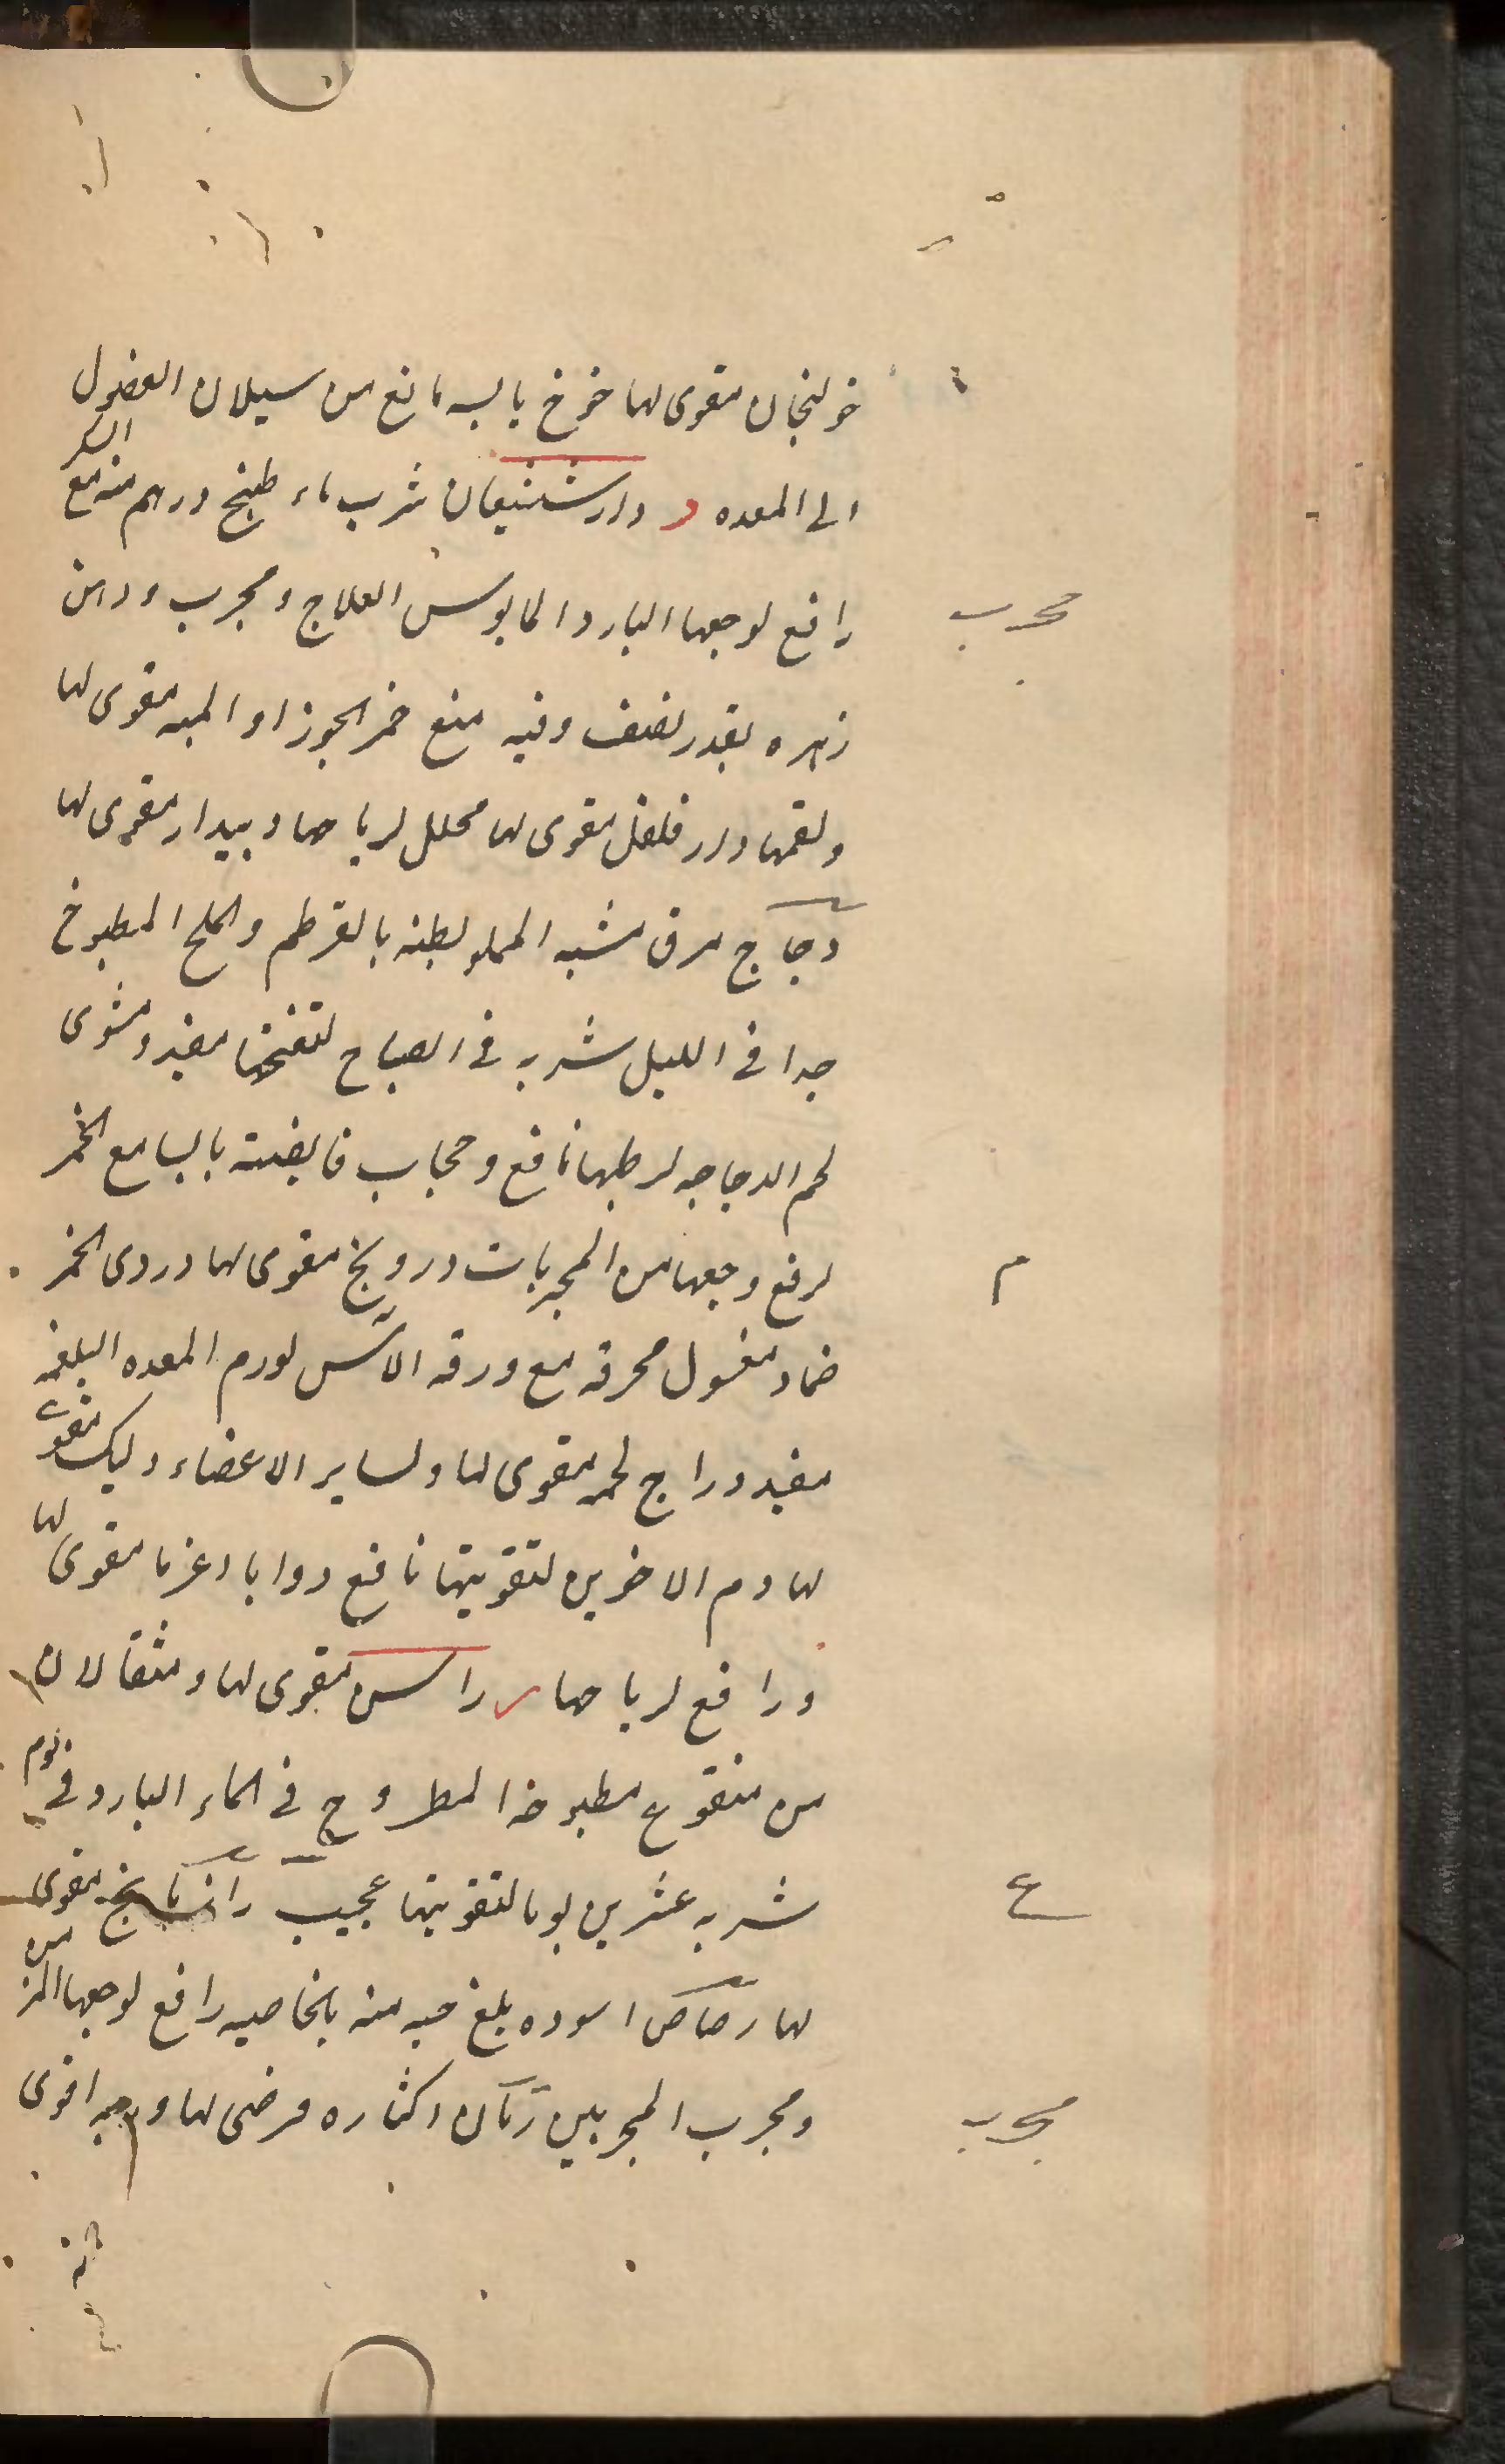 خولنجان مقوى لها خوخ يابسه مانع من سيلان الفضول
الى المعده د دارشنيعان شرب ماء طبخ درهم منه مع السكر
رافع لوجعها البارد المايوس العلاج ومجرب ودهن
مجرب
زهره بقدر نصف وقيه منع خمر الجوز او الميه مقوى لها
ولقمها دار فلفل مقوى لها محلل لرياحها وبيدار مقوى لها
دجاج مرق مشبه المملو بطنه بالقرطم والملح المطبوخ
جدا فى الليل شربه فى الصباح لتفتحنا مفيد ومشوى
لحم الدجاجه لرطبها نافع وحجاب قايضته يابسا مع الخمر
لرفع وجعها من المجربات درونج مقوى لها دردى الخمر
م
ضماد مغسول محرقه مع ورقه الآس لورم المعده البلغمه
مفيد دراج لحمه مقوى لها ولساير الاعضاء ديك مقوى
لها دم الاخوين لتقويتها نافع دوا با دغريا مقوى لها
ورافع لرياحها ر راسن مقوى لها ومثقالان
من منقوع مطبوخه المطروح فى الماء البارد فى يوم
شربه عشرين يوما لتقويتها عجيب رازيانج مقوى
ع
لها رصاص اسوده بلغ حبه منه بالخاصيه رافع لوجعها المزمن
ومجرب المجربين رمان اكثاره مرضى لها وحبه اقوى
مجرب